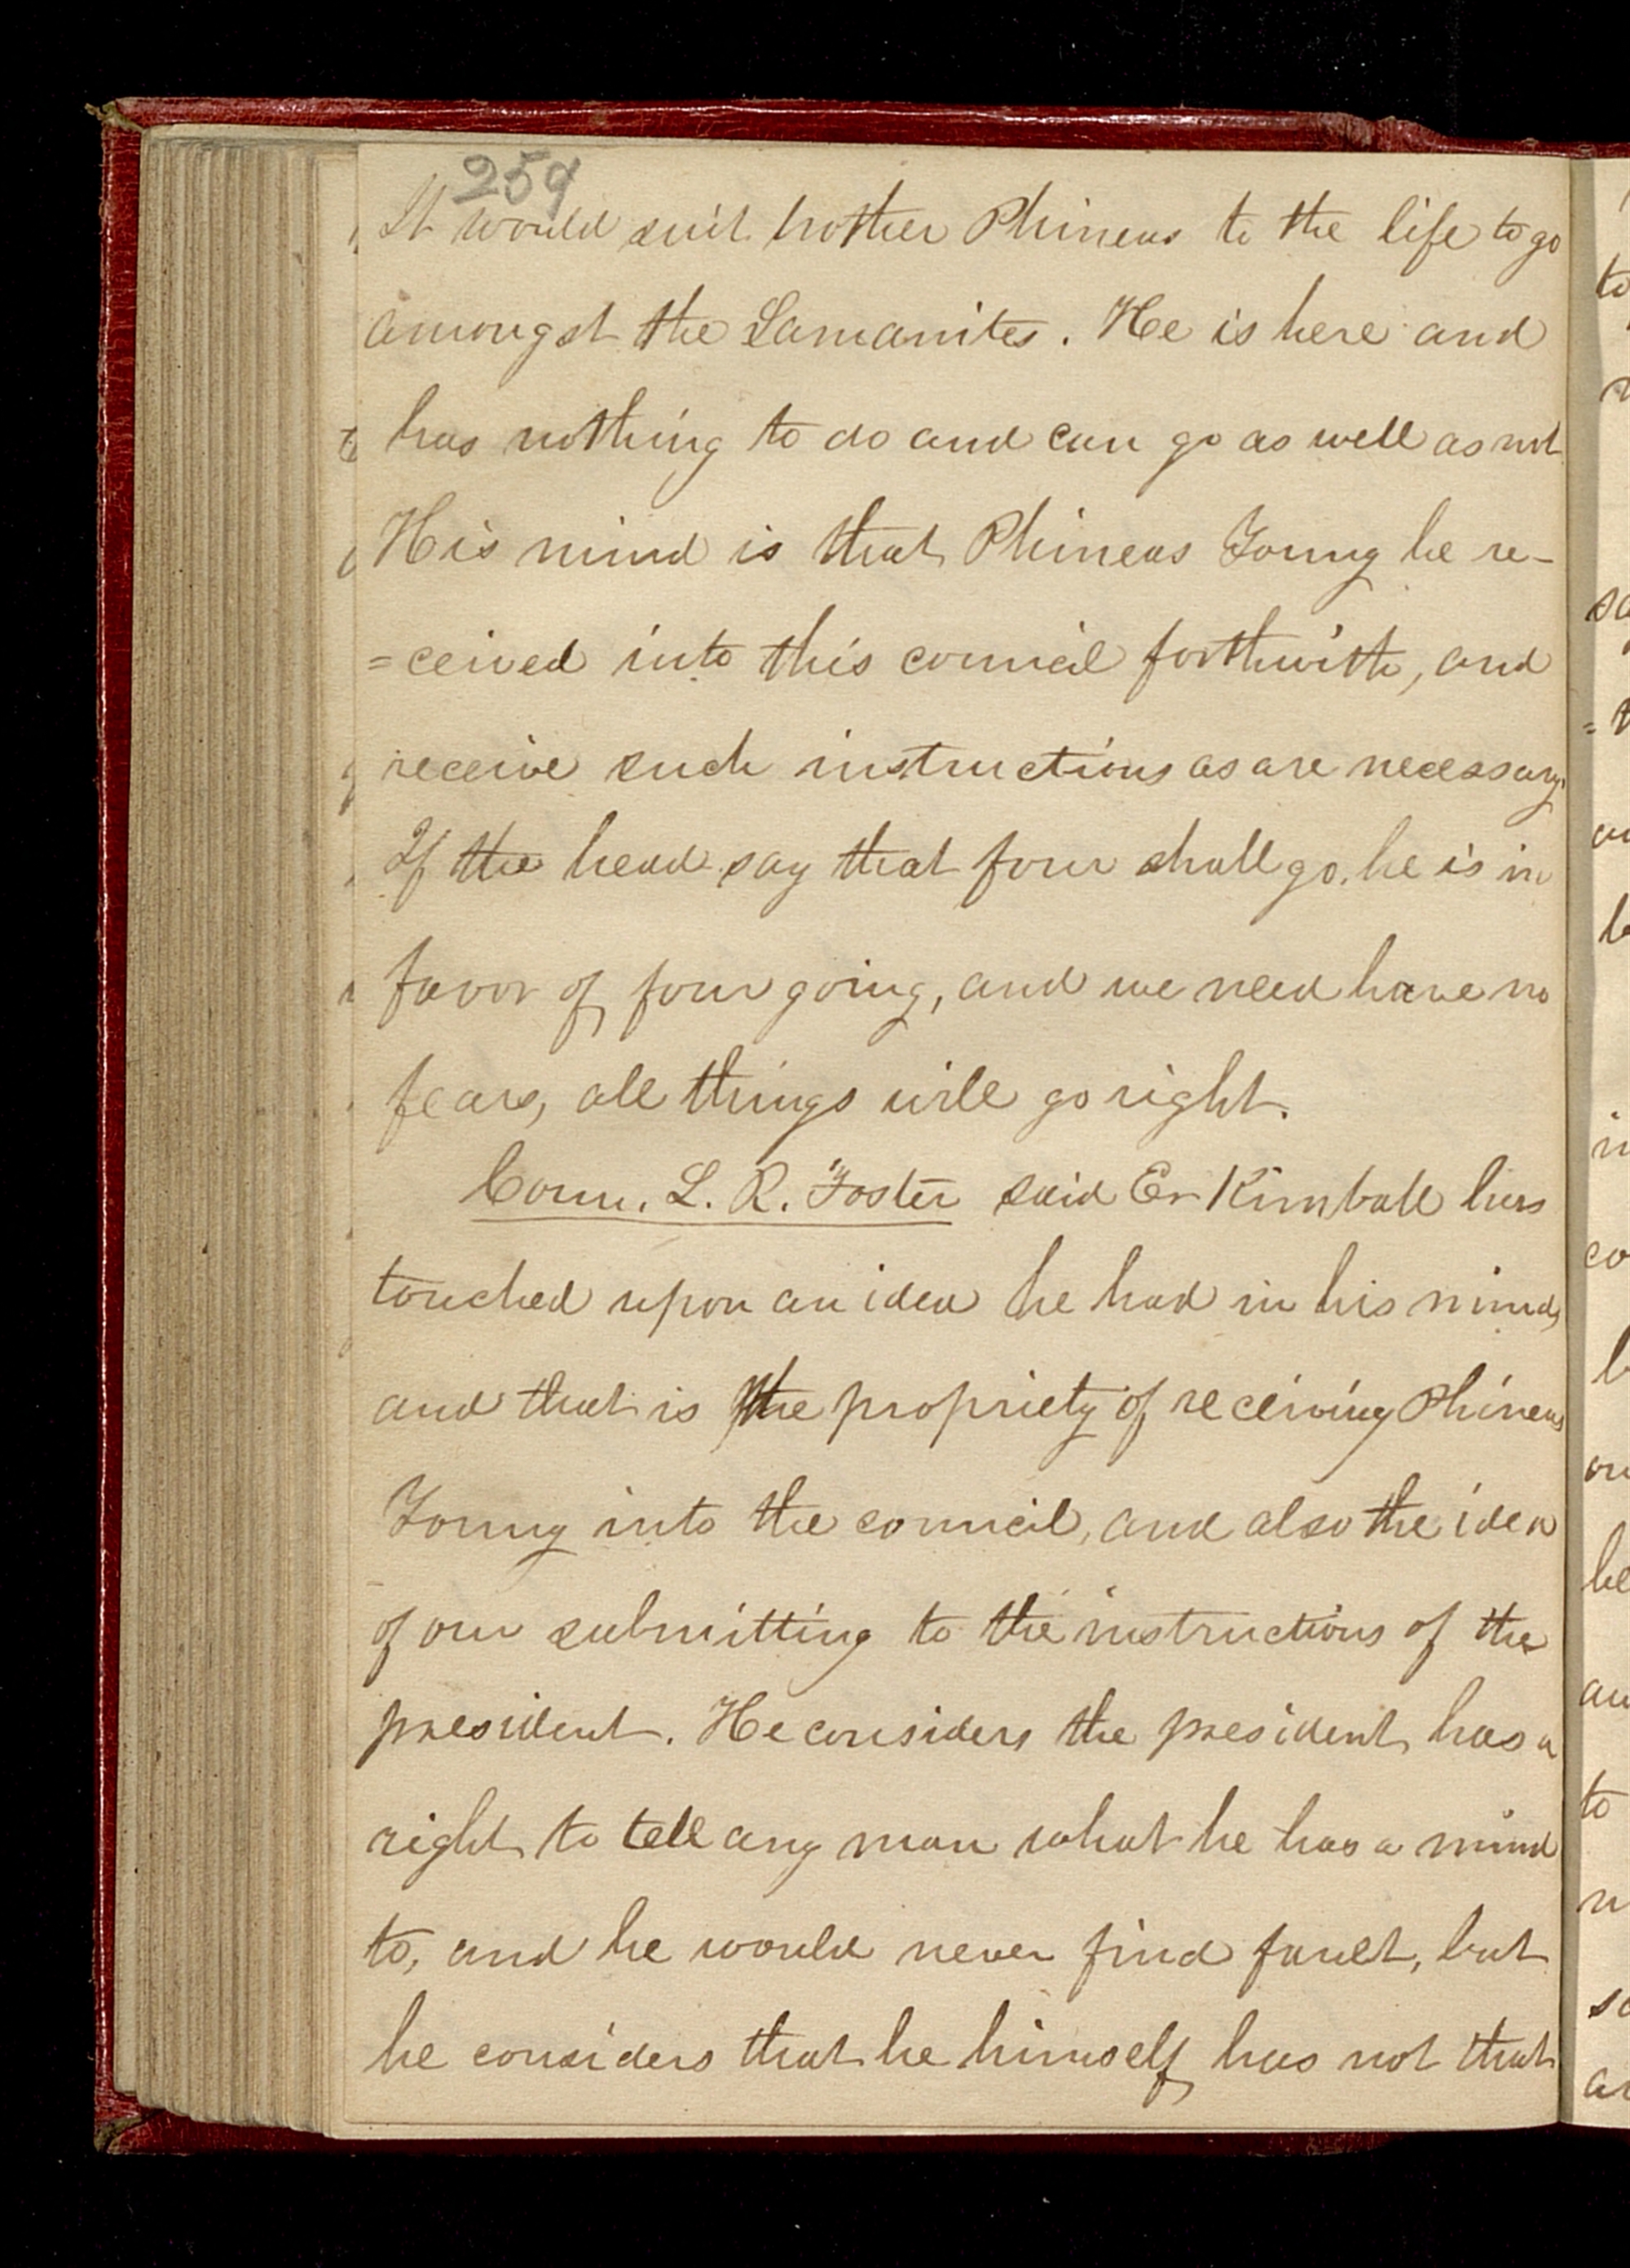 259
It would suit brother Phineas to the life to go
amongst the Lamanites. He is here and
has nothing to do and can go as well as not
His mind is that Phineas Young be re-
=ceived into this council forthwith, and
receive such instructions as are necessary.
If the head say that four shall go, he is in
favor of four going, and we need have no
fears, all things will go right.
Coun. L. R. Foster said Er Kimball has
touched upon an idea he had in his mind,
and that is the propriety of receiving Phineas
Young into the council, and also the idea
of our submitting to the instructions of the
president. He considers the president has a
right to tell any man what he has a mind
to, and he would never find fault, but
he considers that he himself has not that